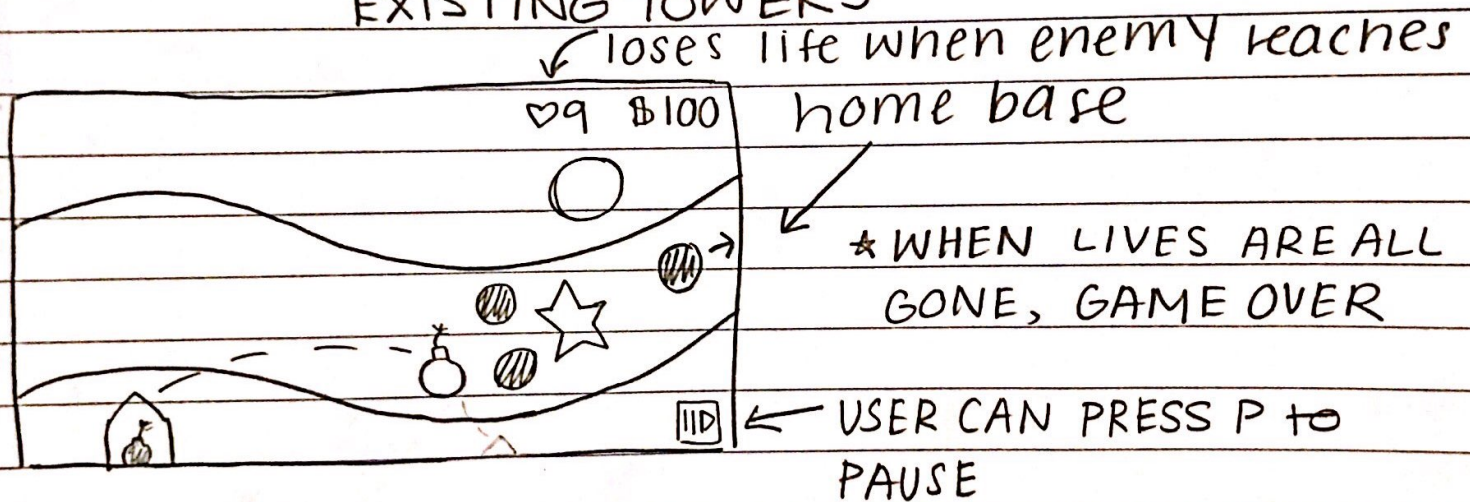 EXISTING TOWERS
loses life when enemy reaches
home base
♡9 $100
★ WHEN LIVES ARE ALL
GONE, GAME OVER
USER CAN PRESS P to
PAUSE